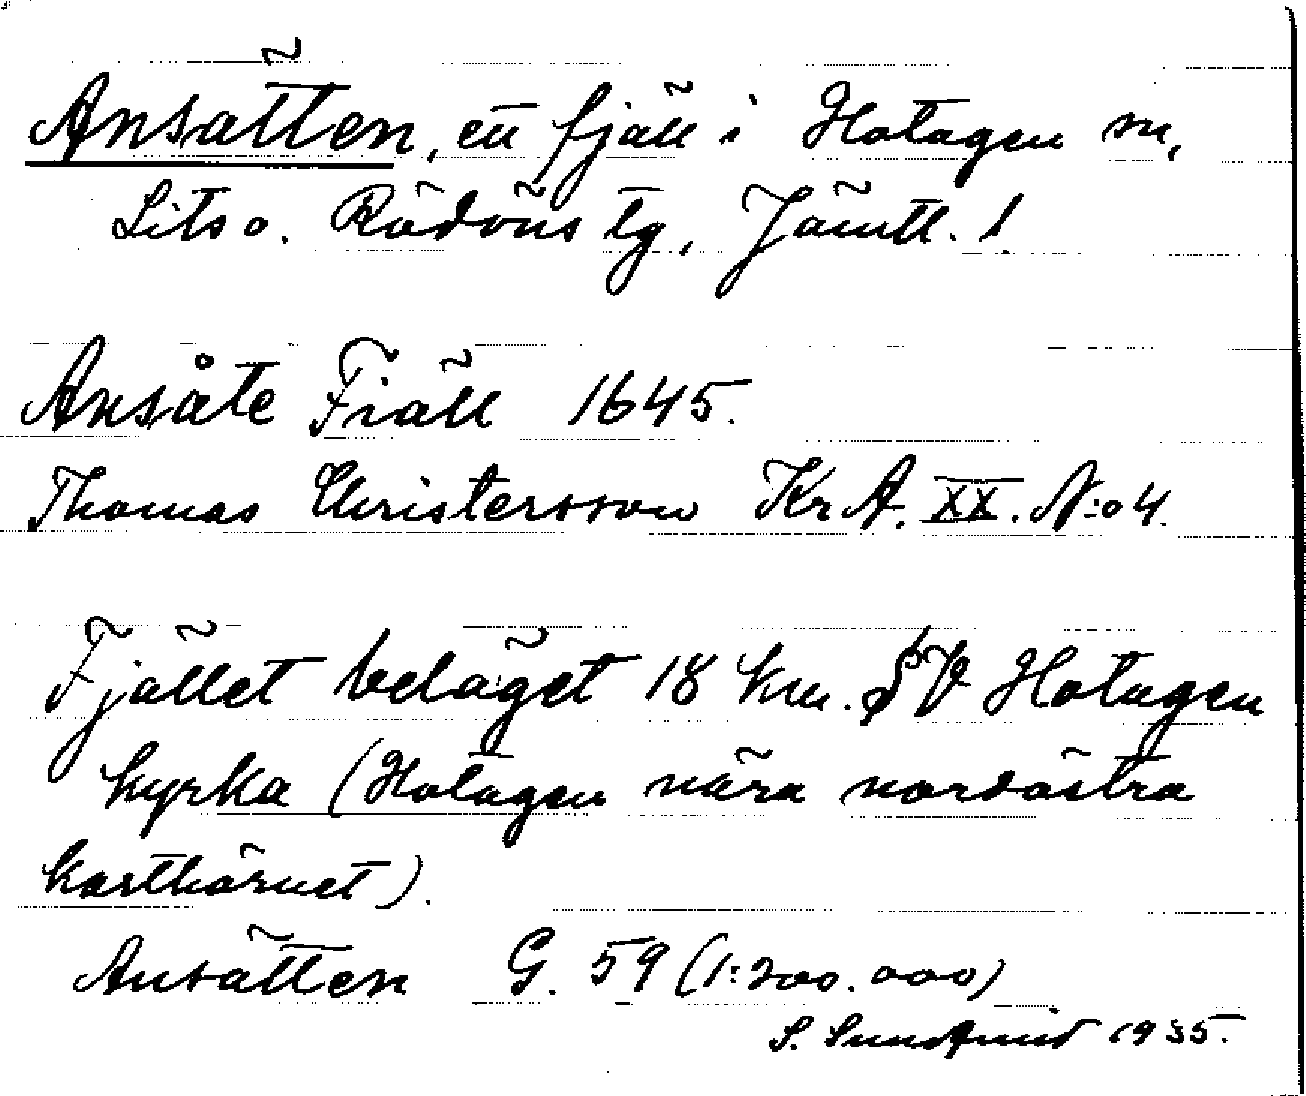 Ansätten, ett fjäll i Hotagen sn,
Lits o. Rödöns tg, Jämtl. l.
Ansåte Fiäll 1645.
Thomas Christersson Kr A. XX. N:o 4.
Fjället beläget 18 km. SV Hotagen
kyrka (Hotagen nära nordöstra
karthörnet).
Ansätten G. 59 (1:200.000)
S. 1935.